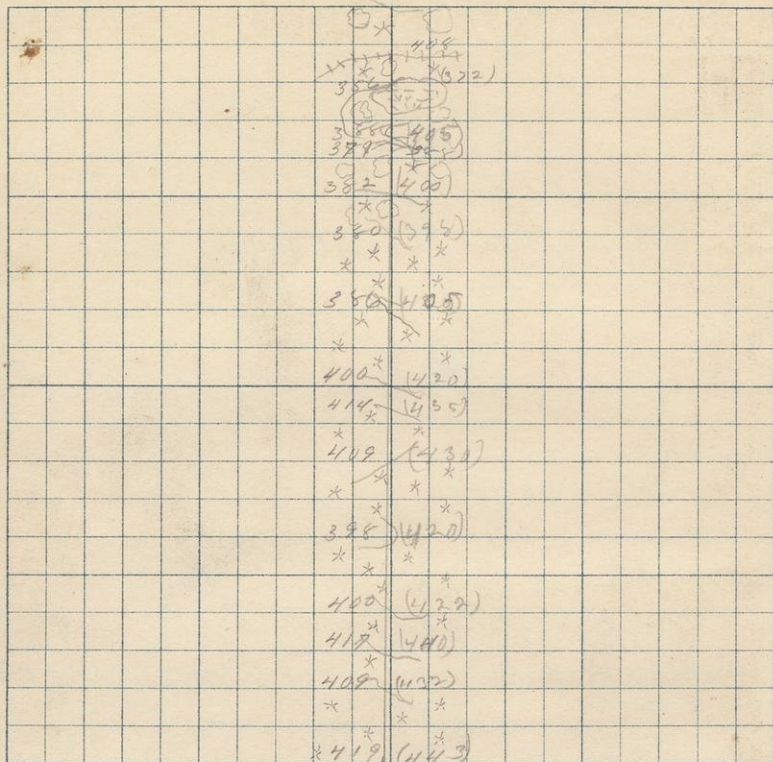 408
(322)
386 (405)
379
382 (400)
380 (398)
386 (405)
400 (420)
414 (435)
409 (430)
398 (420)
400 (422)
417 (440)
409 (432)
419 (443)